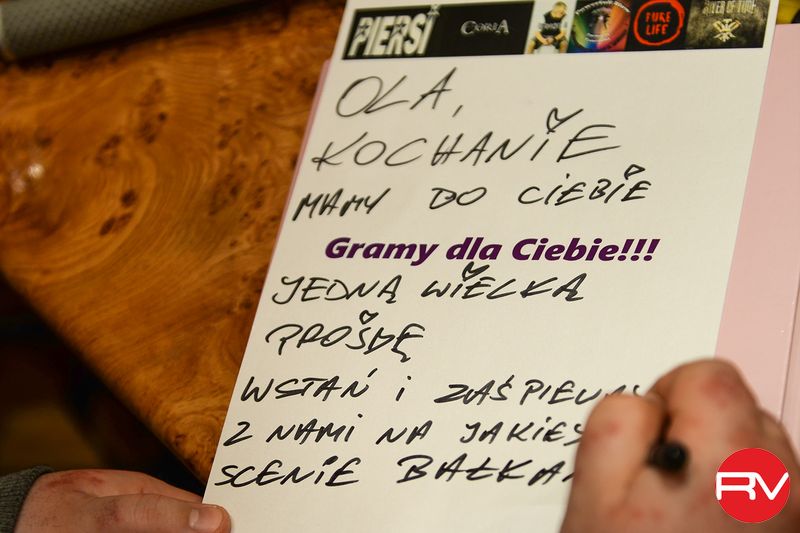 PIERSI CORIA PURE LIFE
OLA,
KOCHANIE
MAMY DO CIEBIE
Gramy dla Ciebie!!!
JEDNĄ WIELKĄ
PROŚBĘ
WSTAŃ i ZAŚPIEWAJ
Z NAMI NA JAKIEJŚ
SCENIE BAŁKA
RV